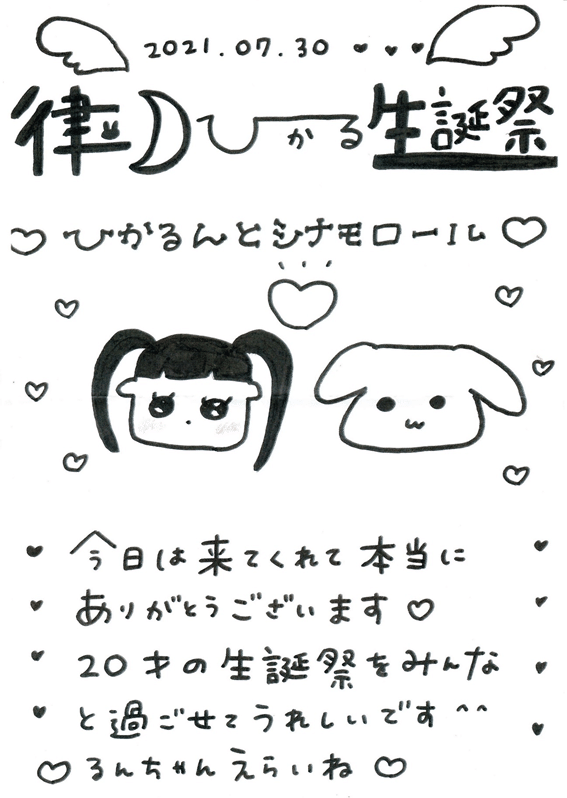 2021.07.30
律月ひかる生誕祭
ひかるんとシナモロール
今日は来てくれて本当に
ありがとうございます♡
20才の生誕祭をみんな
と過ごせてうれしいです^^
♡るんちゃんえらいね♡